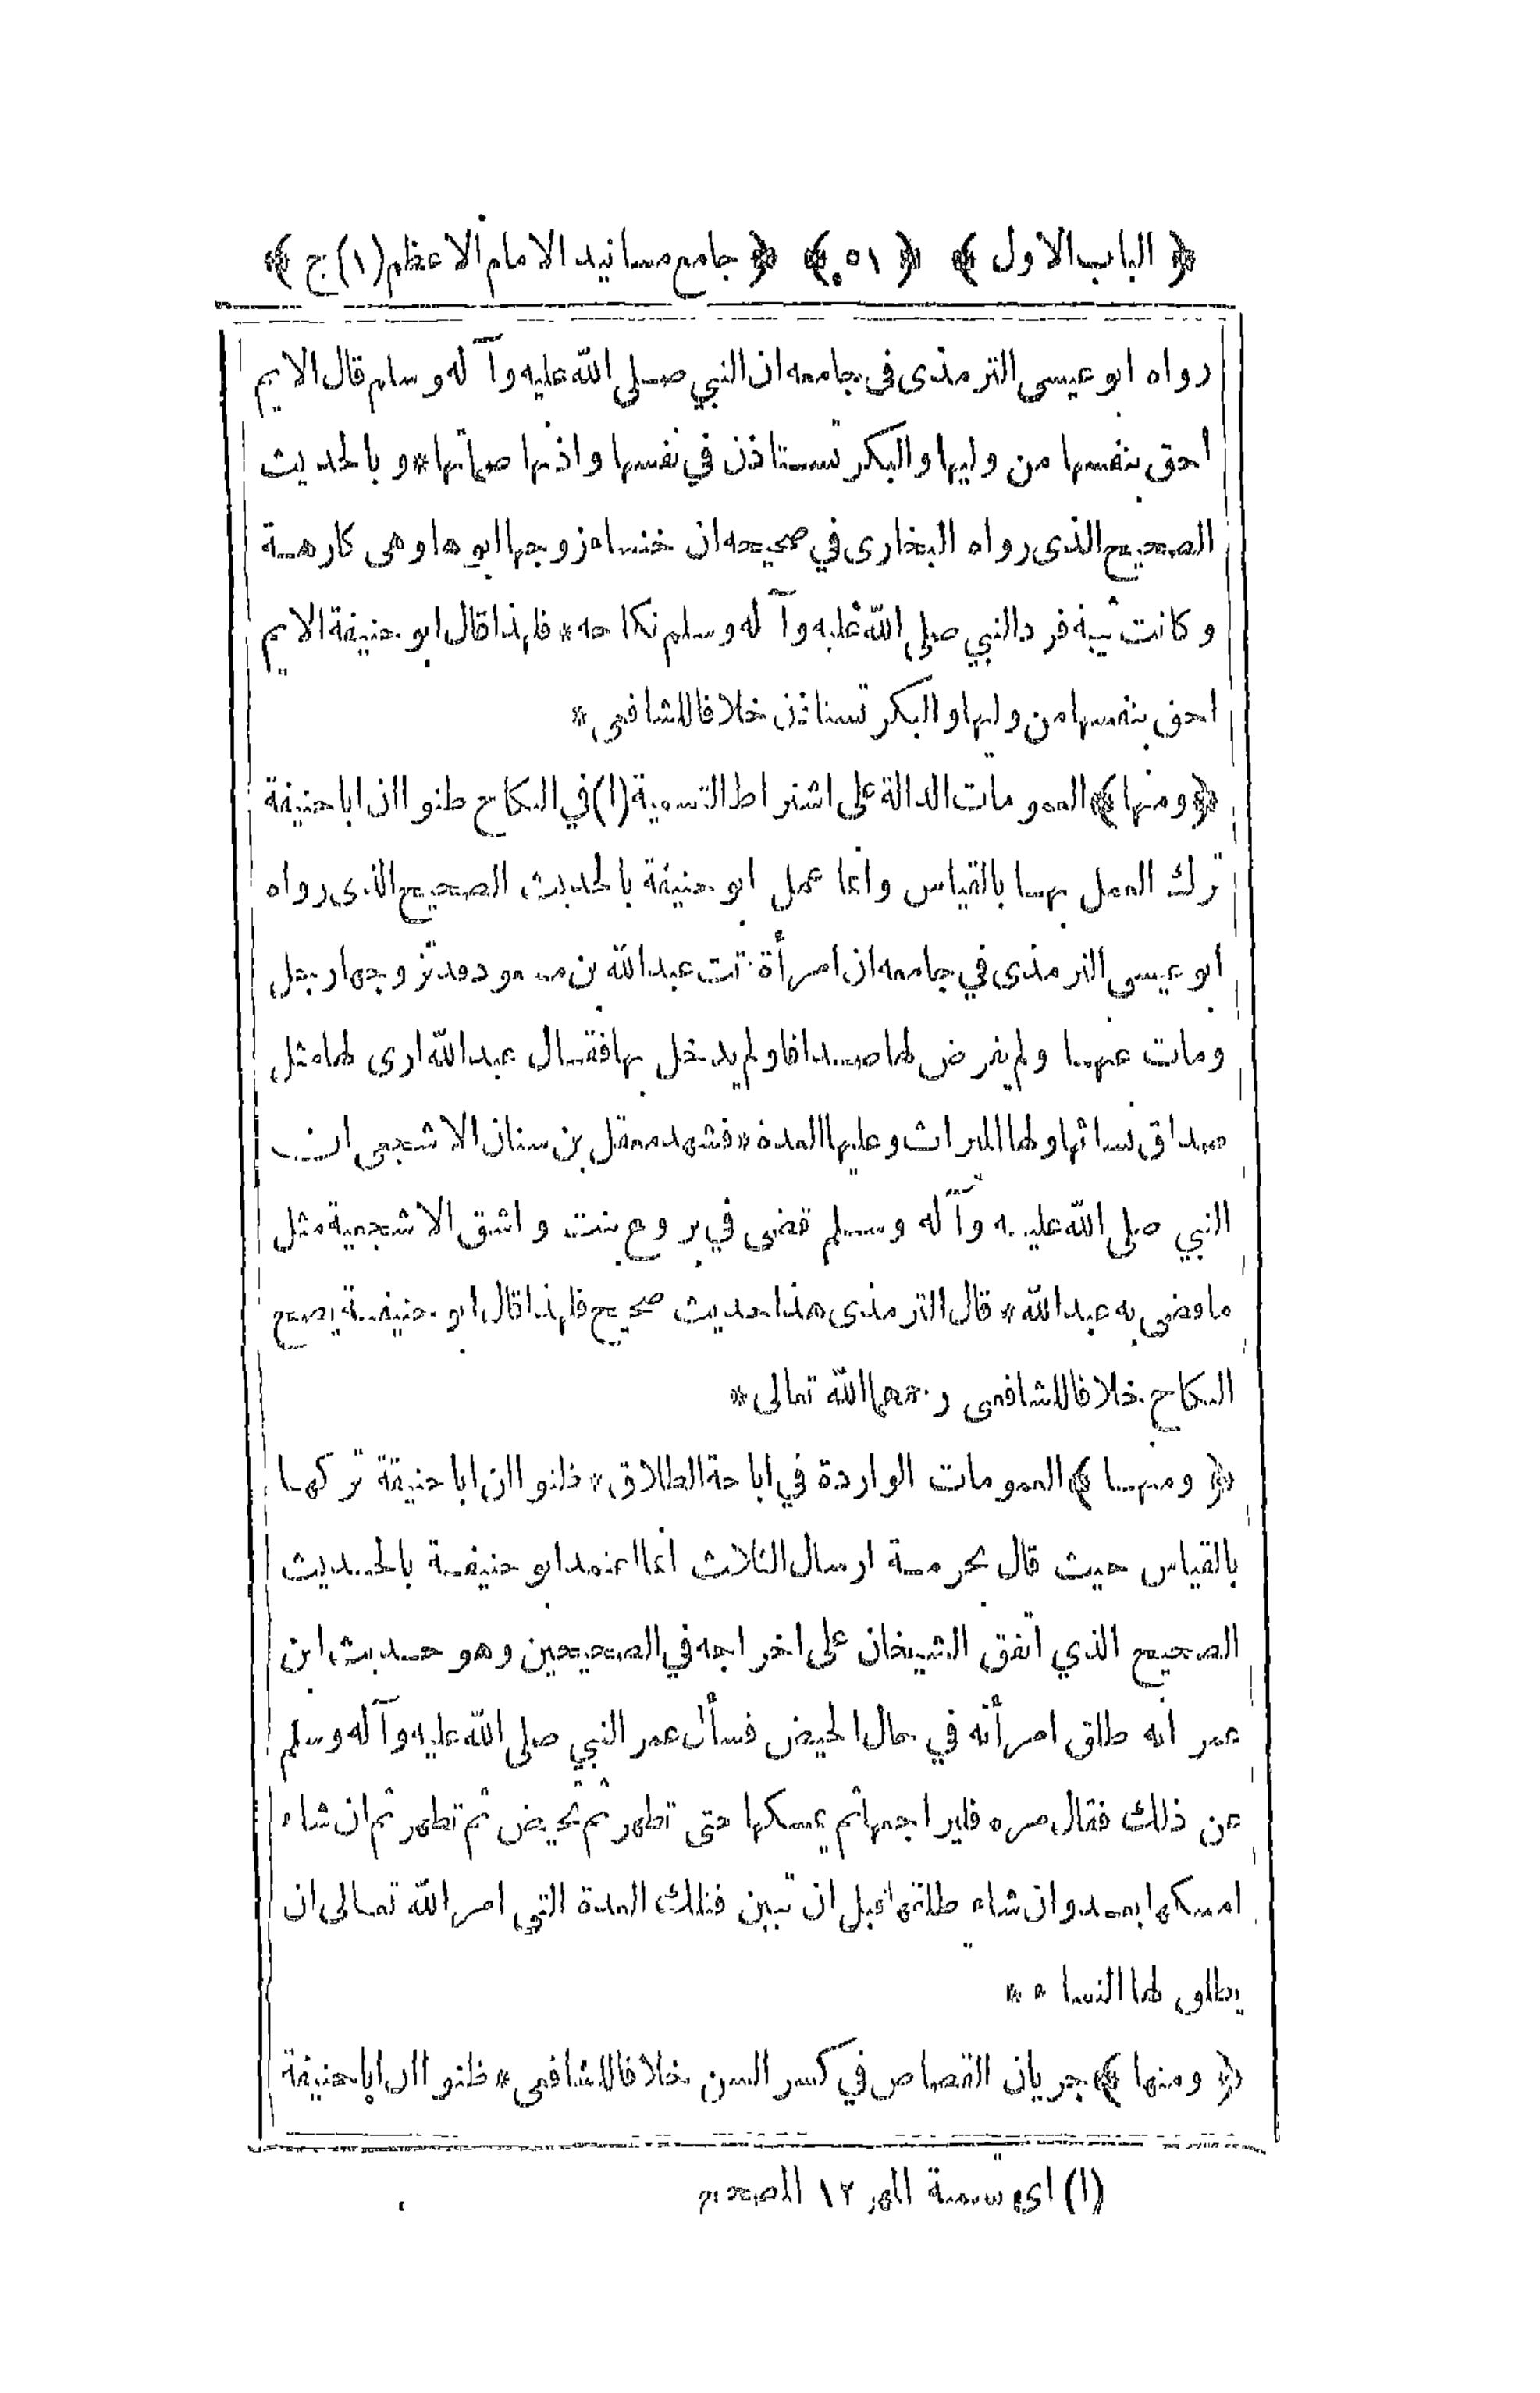 ﴿ الباب الاول ﴾ ﴿ ٥١ ﴾ ﴿ جامع مسانيد الامام الاعظم (١) ج ﴾
رواه ابو عيسى الترمذى فى جامعه ان النبي صلى الله عليه وآله وسلم قال الايم
احق بنفسها من وليها والبكر تستاذن في نفسها واذنها صماتها * وبالحديث
الصحيح الذى رواه البخارى في صحيحه ان خنساء زوجها ابوها وهى كارهة
وكانت ثيبة فرد النبي صلى الله عليه وآله وسلم نكاحه * فلهذا قال ابو حنيفة الايم
احق بنفسها من وليها والبكر تستاذن خلافا للشافعى *
﴿ ومنها ﴾ العمومات الدالة على اشتراط التسمية (١) في النكاح ظنوا ان ابا حنيفة
ترك العمل بها بالقياس وانما عمل ابو حنيفة بالحديث الصحيح الذى رواه
ابو عيسى الترمذى في جامعه ان امرأة اتت عبد الله بن مسعود وقد تزوجها رجل
ومات عنها ولم يفرض لها صداقا ولم يدخل بها فقال عبد الله ارى لها مثل
صداق نسائها ولها الميراث وعليها العدة * فشهد معقل بن سنان الاشجعى ان
النبي صلى الله عليه وآله وسلم قضى في بروع بنت واشق الاشجعية مثل
ما قضى به عبد الله * قال الترمذى هذا حديث صحيح فلهذا قال ابو حنيفة يصح
النكاح خلافا للشافعى رحمهما الله تعالى *
﴿ ومنها ﴾ العمومات الواردة في اباحة الطلاق * ظنوا ان ابا حنيفة تركها
بالقياس حيث قال بحرمة ارسال الثلاث انما اعتمد ابو حنيفة بالحديث
الصحيح الذي اتفق الشيخان على اخراجه في الصحيحين وهو حديث ابن
عمر انه طلق امرأته في حال الحيض فسأل عمر النبي صلى الله عليه وآله وسلم
عن ذلك فقال مره فليراجعها ثم يمسكها حتى تطهر ثم تحيض ثم تطهر ثم ان شاء
امسكها بعد وان شاء طلقها قبل ان تبين فتلك العدة التي امر الله تعالى ان
يطلق لها النساء *
﴿ ومنها ﴾ جريان القصاص في كسر السن خلافا للشافعى * ظنوا ان ابا حنيفة
(١) اى تسمية المهر ١٢ المصحح